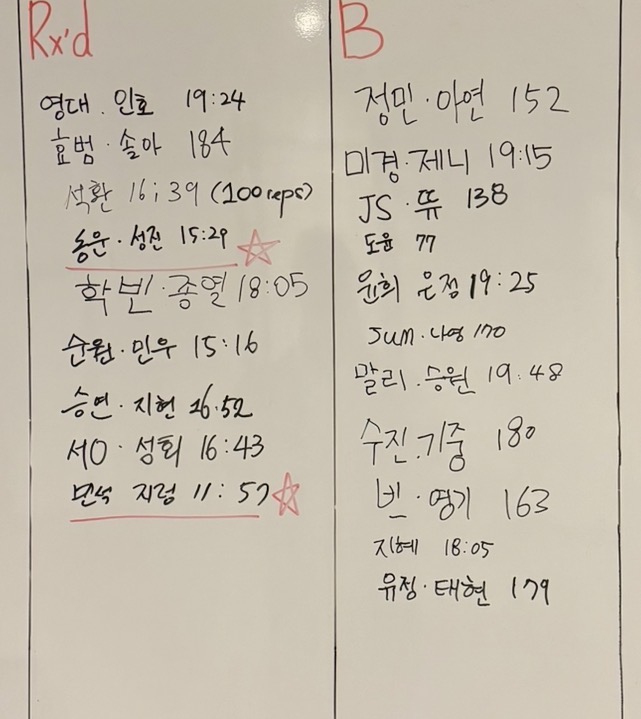 Rx'd
영대 . 인호 19:24
효범 · 솔아 184
석환 16;39 (100reps)
동운 · 성진 15:29
학빈 · 종열 18:05
순원 · 민우 15:16
승연 · 지현 16.52
서O · 성회 16:43
민석 지렁 11:57
B
정민 · 아연 152
미경 · 제니 19:15
JS · 뜌 138
도윤 77
윤희 은정 19:25
JUM · 나영 170
말리 . 승원 19:48
수진 . 기중 180
빈 · 영기 163
지혜 18:05
유정 · 태현 179